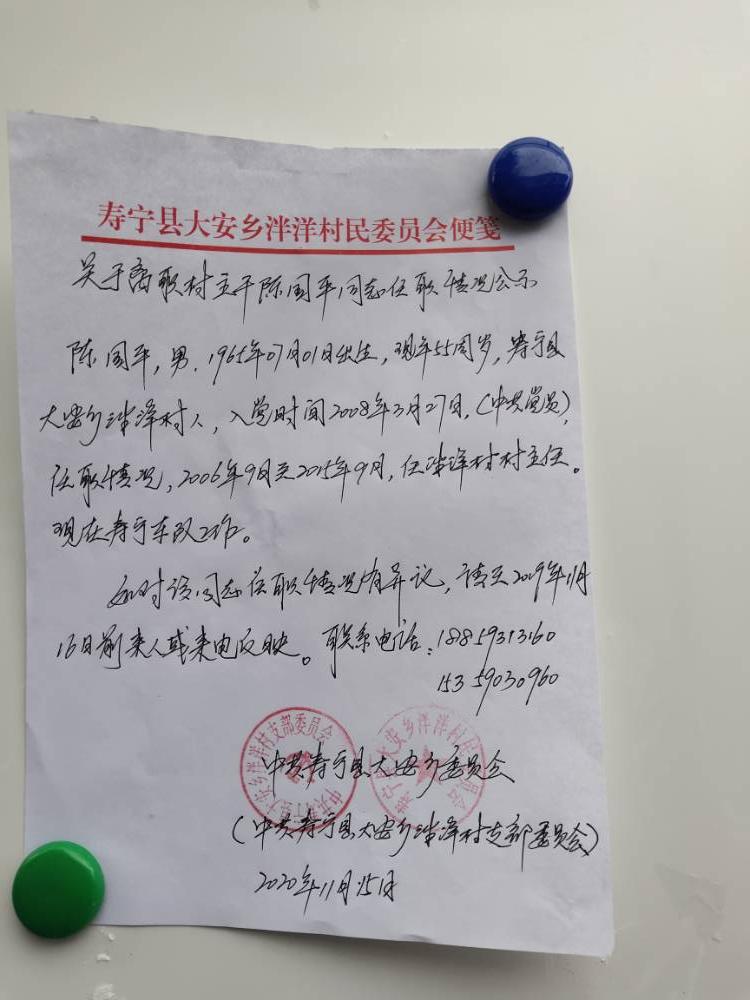 寿宁县大安乡泮洋村民委员会便笺
关于离职村主干陈国平同志任职情况公示
陈国平，男，1965年07月01日出生，现年55周岁，寿宁县
大安乡泮洋村人，入党时间2008年3月27日，（中共党员），
任职情况，2006年9月至2015年9月，任泮洋村村主任。
现在寿宁车队工作。
如对该同志任职情况有异议，请于2019年11月
16日前来人或来电反映。联系电话：18859313160
15359030960
中共寿宁县大安乡委员会
（中共寿宁县大安乡泮洋村支部委员会）
2020年11月15日
大安乡泮洋村支部委员会
寿宁县大安乡泮洋村民委员会